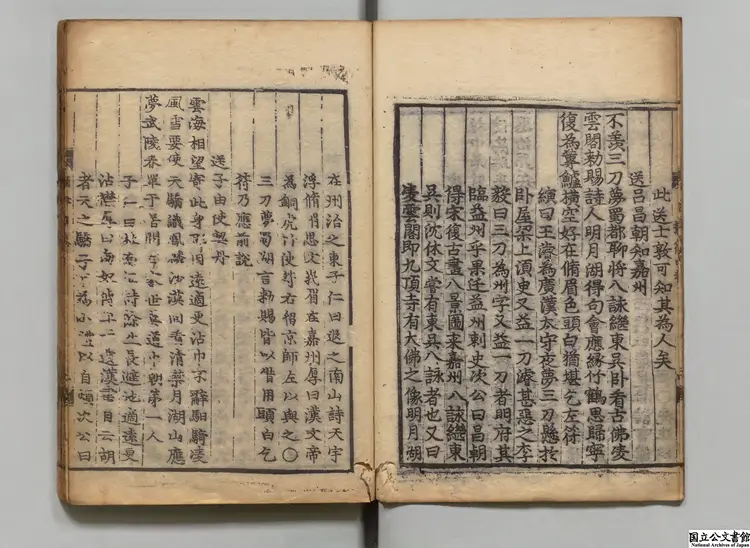 此送士敦可知其為人矣
送呂昌朝知嘉州
不羨三刀夢蜀都聊將八詠繼東吳卧看古佛凌
雲閣勅賜詩人明月湖得句會應緣竹鶴思歸寧
復為蓴鱸橫空好在脩眉色頭白猶堪乞左符
縯曰王濬為廣漢太守夜夢三刀懸於
卧屋梁上須臾又益一刀濬甚惡之李
毅曰三刀為州字又益一刀者明府其
臨益州乎果迁益州刺史次公曰昌朝
得宋復古畫八景圖来嘉州八詠繼東
吳則沈休文嘗有東吳八詠者也又曰
凌雲閣即九頂寺有大佛之像明月湖
在州治之東子仁曰退之南山詩天宇
浮脩眉思文峩眉在嘉州厚曰漢文帝
為銅虎竹使符右留京師左以與之〇
三刀夢蜀湖言勅賜皆以皆用頭白乞
符乃應前說
送子由使契丹
雲海相望寄此身那因遠適更沾巾不辭馹騎凌
風雪要使天驕識鳳麟沙漠回看清禁月湖山應
夢武陵春單于若問君家世莫道中朝第一人
子仁曰
沾
者天之驕子 以自頭次公曰